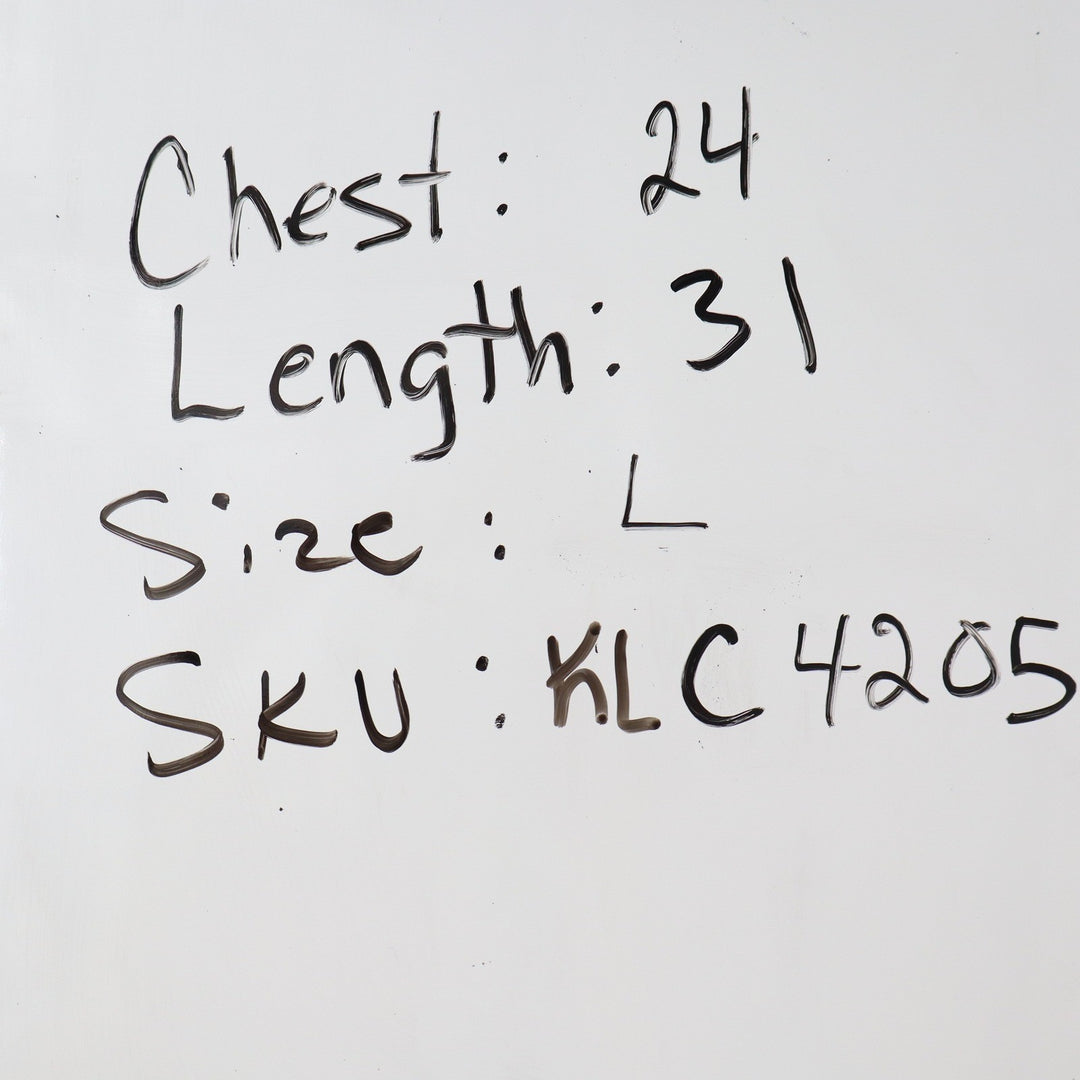 Chest: 24
Length: 31
Size: L
SKU: KLC4205